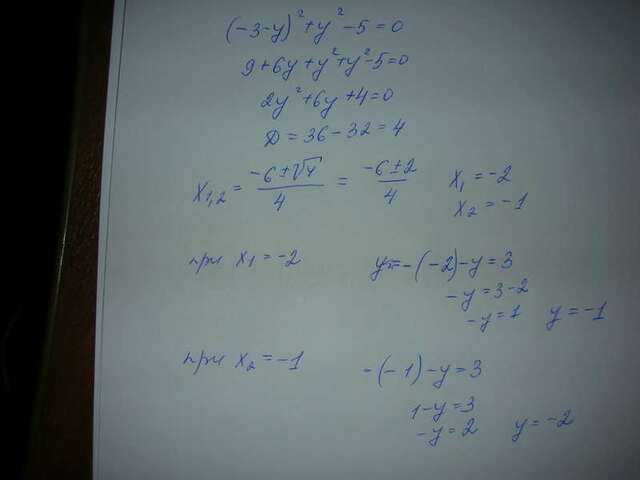 (-3-y)²+y²-5=0
9+6y+y²+y²-5=0
2y²+6y+4=0
D=36-32=4
x₁,₂ = (-6±√4)/4 = (-6±2)/4 x₁=-2
x₂=-1
при x₁=-2 y=-(-2)-y=3
-y=3-2
-y=1 y=-1
при x₂=-1 -(-1)-y=3
1-y=3
-y=2 y=-2